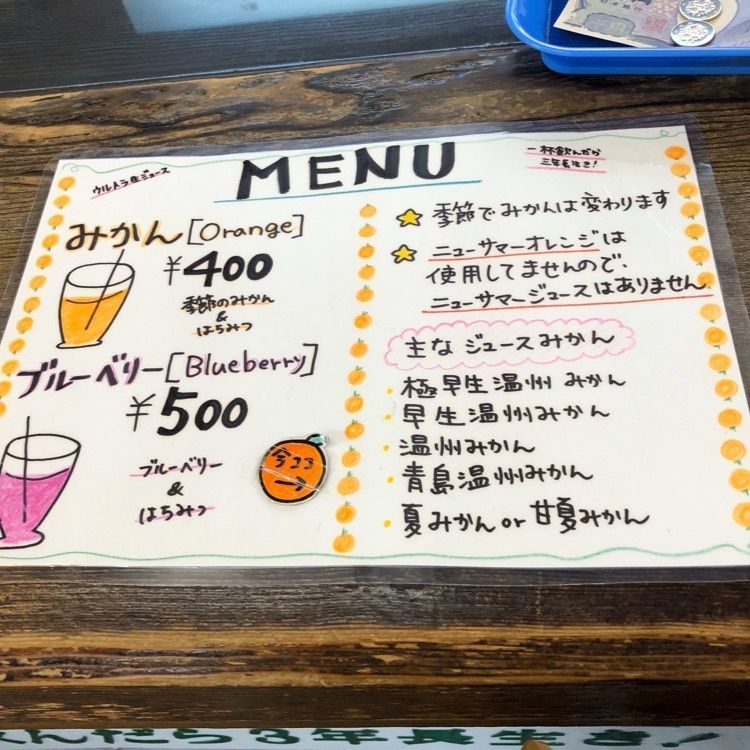 ウルトラ生ジュース
MENU
一杯飲んだら
三年長生き!
みかん[Orange]
¥400
季節のみかん
&
はちみつ
ブルーベリー[Blueberry]
¥500
ブルーベリー
&
はちみつ
今ココ
→
季節でみかんは変わります
ニューサマーオレンジは
使用してませんので、
ニューサマージュースはありません
主なジュースみかん
極早生温州みかん
早生温州みかん
温州みかん
青島温州みかん
夏みかん or 甘夏みかん
飲んだら3年長生き!